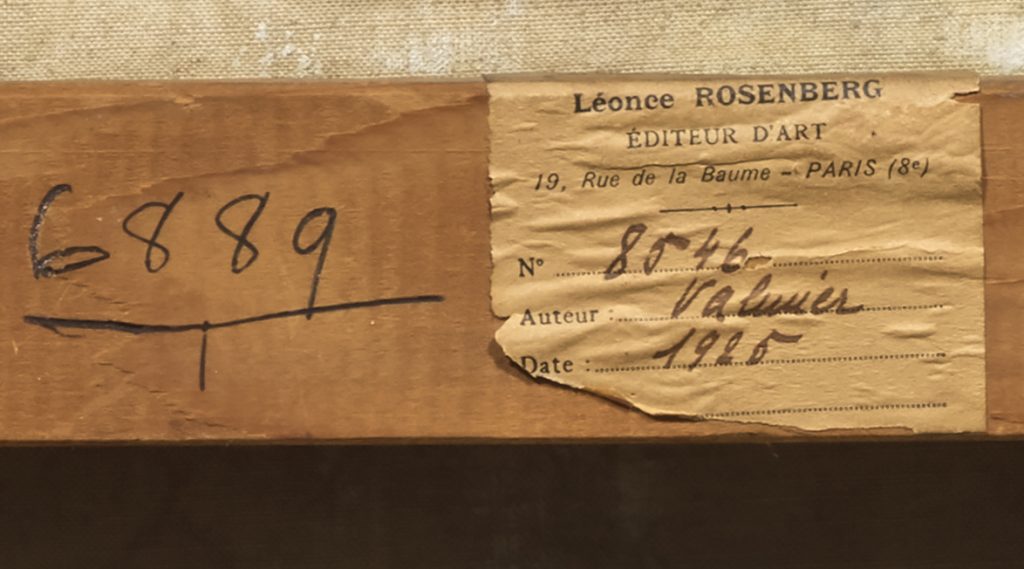 6889
1
Léonce ROSENBERG
ÉDITEUR D'ART
19, Rue de la Baume - PARIS (8e)
N° 8546
Auteur : Valmier
Date : 1925